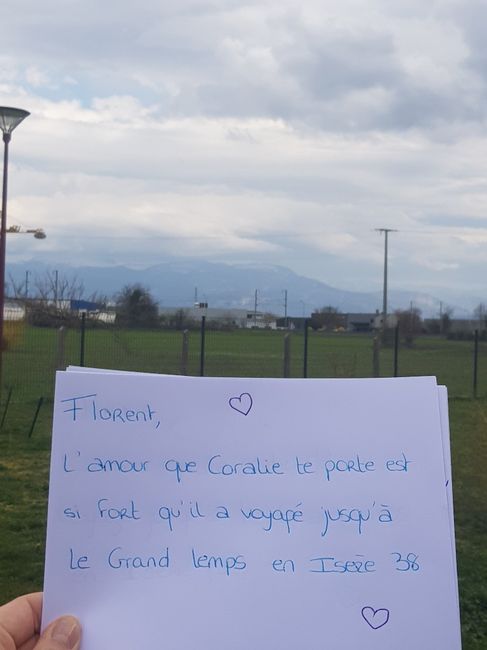 Florent,
L'amour que Coralie te porte est
si fort qu'il a voyagé jusqu'à
Le Grand lemps en Isère 38